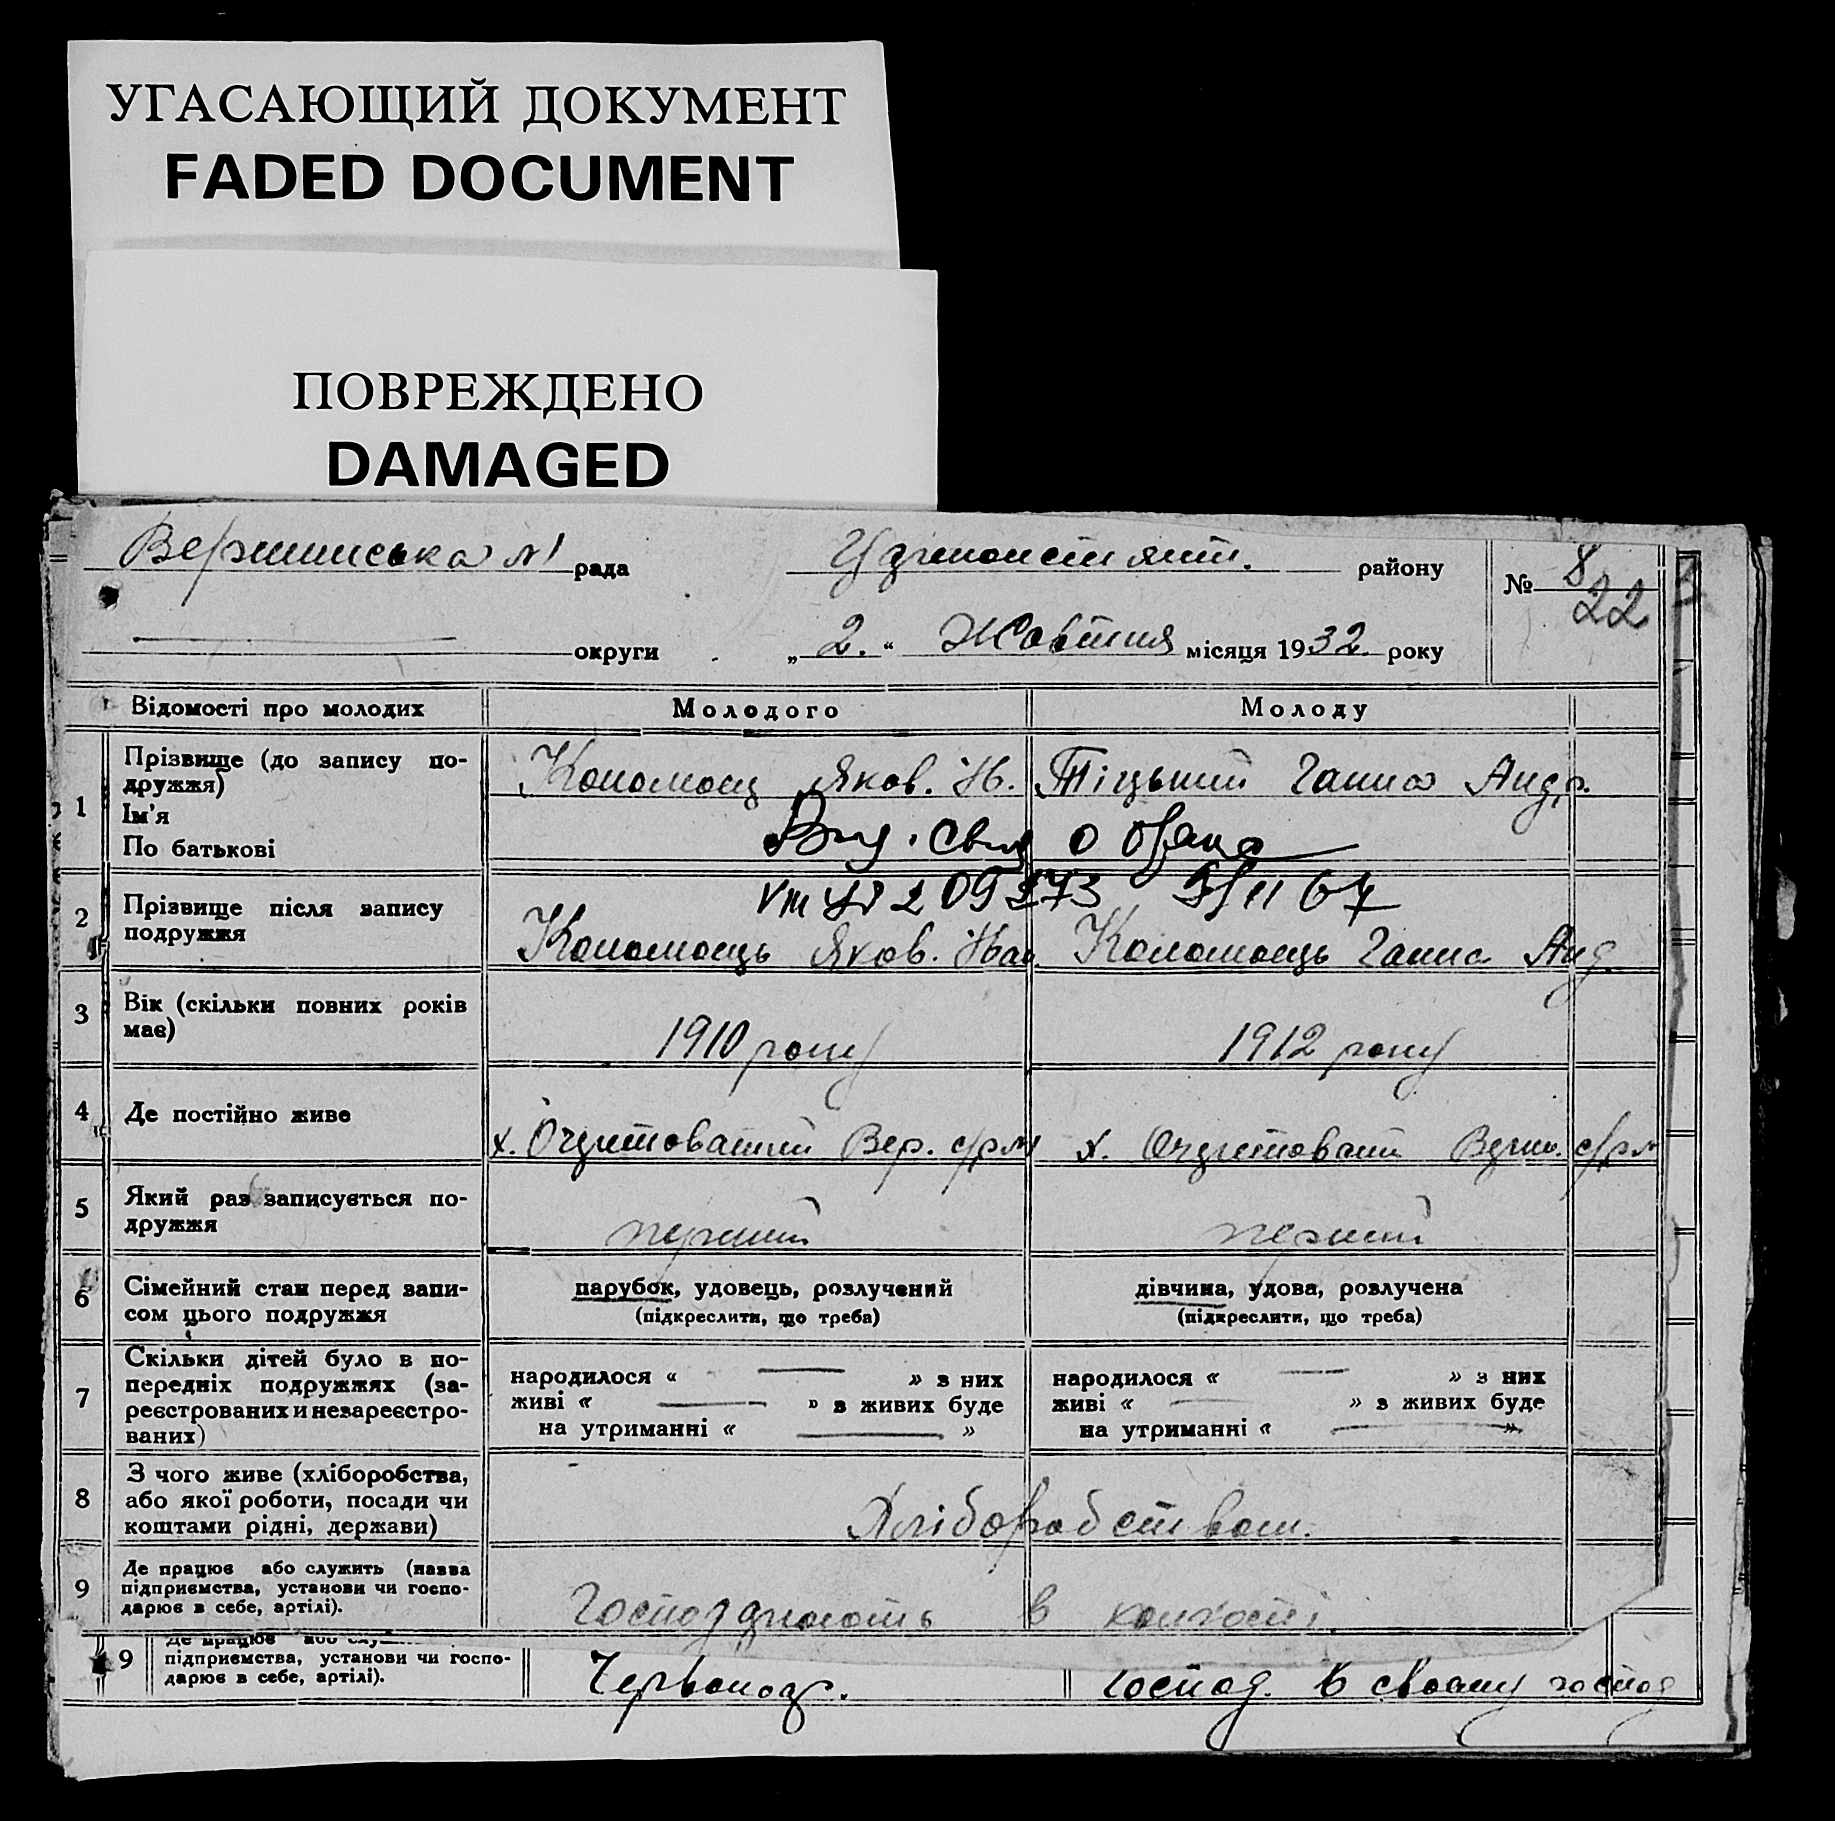 УГАСАЮЩИЙ ДОКУМЕНТ
FADED DOCUMENT
ПОВРЕЖДЕНО
DAMAGED
рада району № 8
22
округи „2.“ Жовтня місяця 1932 року
Відомості про молодих Молодого Молоду
1 Прізвище (до запису по-
дружжя)
Ім'я
По батькові
Яков. Ів. Ганна Андр.
Вид. Свид о браке
209273
2 Прізвище після запису
подружжя
Коломоєць Яков. Іван. Коломоєць Ганна Анд.
3 Вік (скільки повних років
має)
1910 року 1912 року
4 Де постійно живе
х. Вер. с/р х. с/р
5 Який раз записується по-
дружжя
перший перший
6 Сімейний стан перед запи-
сом цього подружжя
парубок, удовець, розлучений дівчина, удова, розлучена
(підкреслити, що треба) (підкреслити, що треба)
7 Скільки дітей було в по-
передніх подружжях (за-
реєстрованих и незареєстро-
ваних)
народилося « — » з них народилося « — » з них
живі « — » з живих буде живі « — » з живих буде
на утриманні « — » на утриманні « — »
8 З чого живе (хліборобства,
або якої роботи, посади чи
коштами рідні, держави)
Хліборобством.
9 Де працює або служить (назва
підприємства, установи чи госпо-
дарює в себе, артілі).
в колгоспі
9 Де працює або
підприємства, установи чи госпо-
дарює в себе, артілі).
господ. в своєму господ